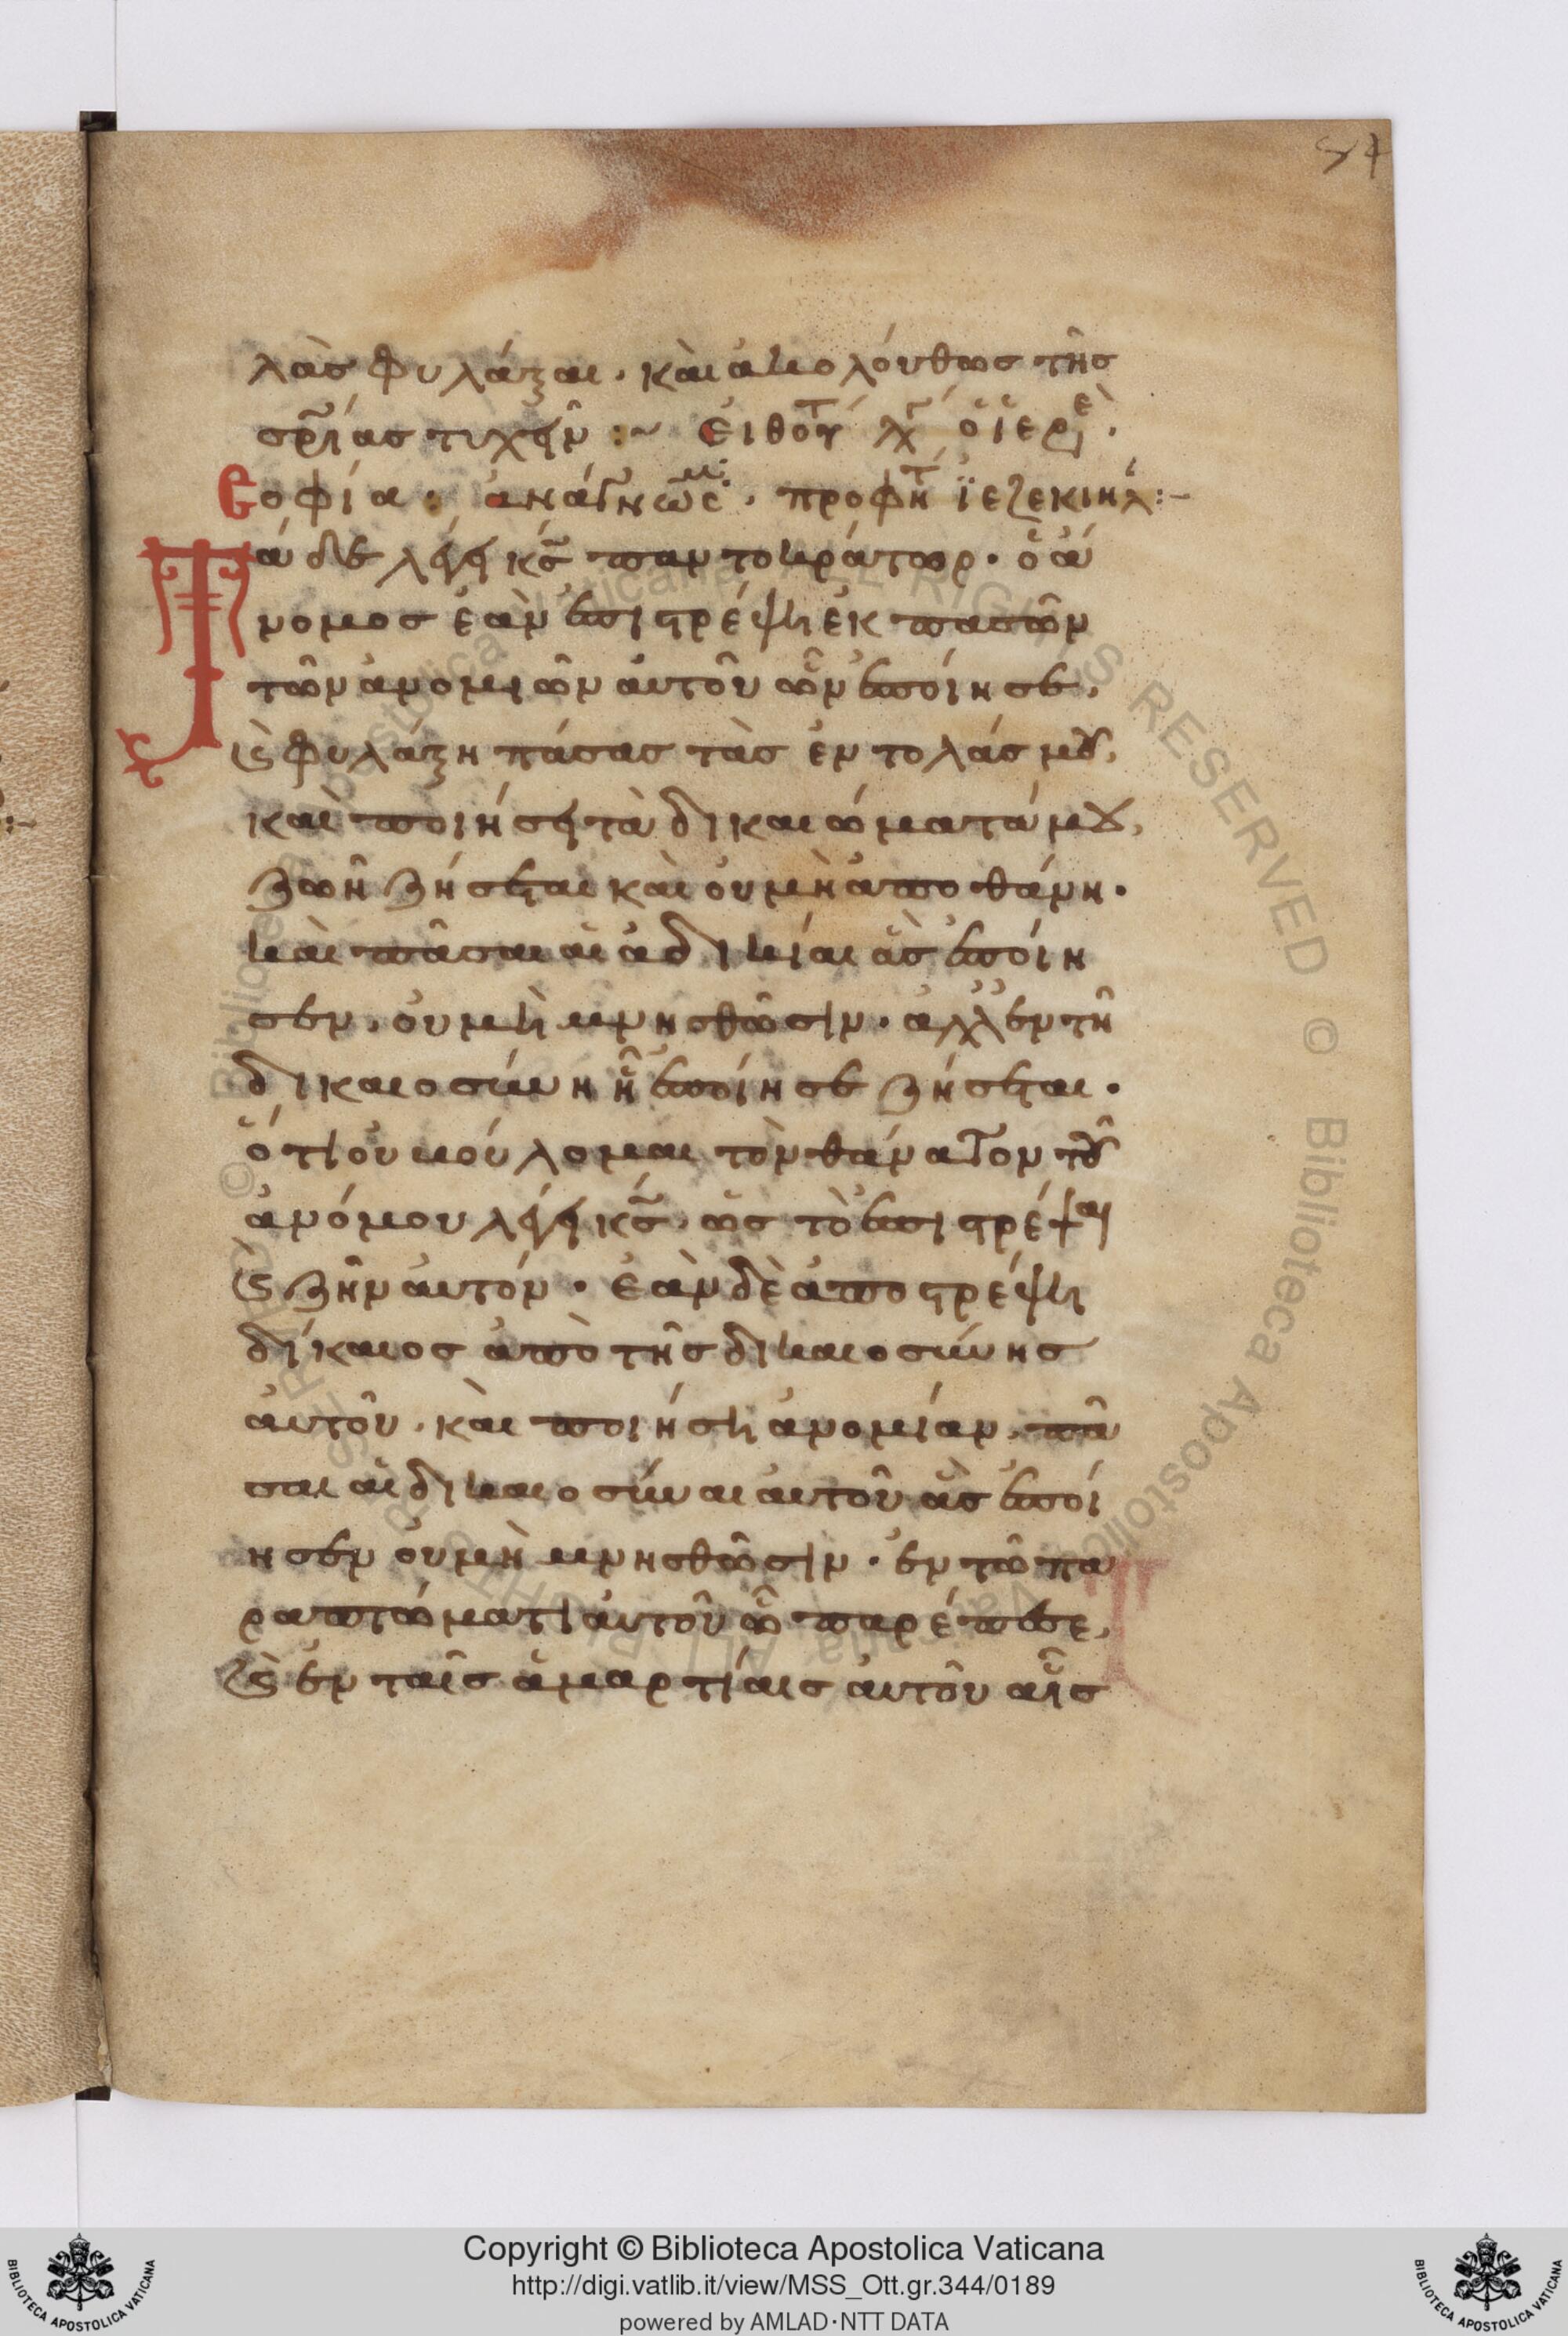 84
λὰσ φυλάξαι · κὰι ἀκολόυθωσ τῆσ
σρ̅ίασ τυχεῖν :~ Εἰθοτ λχ ὁ ἱερε .
Σοφία : ἀνάγνωσ . προφητ ϊεζεκιήλ :-
Τάδε λέγει κσ̅ παντοκράτωρ · ὁ ἄ
νομοσ ἐὰν ἐπιστρέψη ἐκ πασῶν
τῶν ἀνομιῶν ἀυτοῦ ὧν ἐποίησε,
ϗ φυλάξη πάσασ τὰσ ἐντολάσ μου,
καὶ ποιήσει τὰ δικαιώματά μου,
ζωῆ ζήσεται κὰι ὀυ μὴ ἀποθάνη ·
κὰι πᾶσαι αἱ ἀδικίαι ἃσ ἐποίη
σεν, ὀυ μὴ μνησθῶσιν · ἀλλ' ἐν τῆ
δικαιοσύνη ἧ ἐποίησε ζήσεται ·
ὅτι ὀυ βούλομαι τὸν θάνατον τοῦ
ἀνόμου λέγει κσ̅, ὡσ τὸ ἐπιστρέψαι
ϗ ζῆν ἀυτόν · ἐὰν δὲ ἀποστρέψη
δίκαιοσ ἀπὸ τῆσ δικαιοσύνησ
ἀυτοῦ, κὰι ποιήση ἀνομίαν, πᾶ
σαι αἱ δικαιοσύναι ἀυτοῦ ἃσ ἐποί
ησεν ὀυ μὴ μνησθῶσιν · ἐν τῶ πα
ραπτώματι ἀυτοῦ ὧ παρέπεσε,
ϗ ἐν ταῖσ ἁμαρτίαισ ἀυτοῦ αἷσ
Copyright © Biblioteca Apostolica Vaticana
http://digi.vatlib.it/view/MSS_Ott.gr.344/0189
powered by AMLAD·NTT DATA